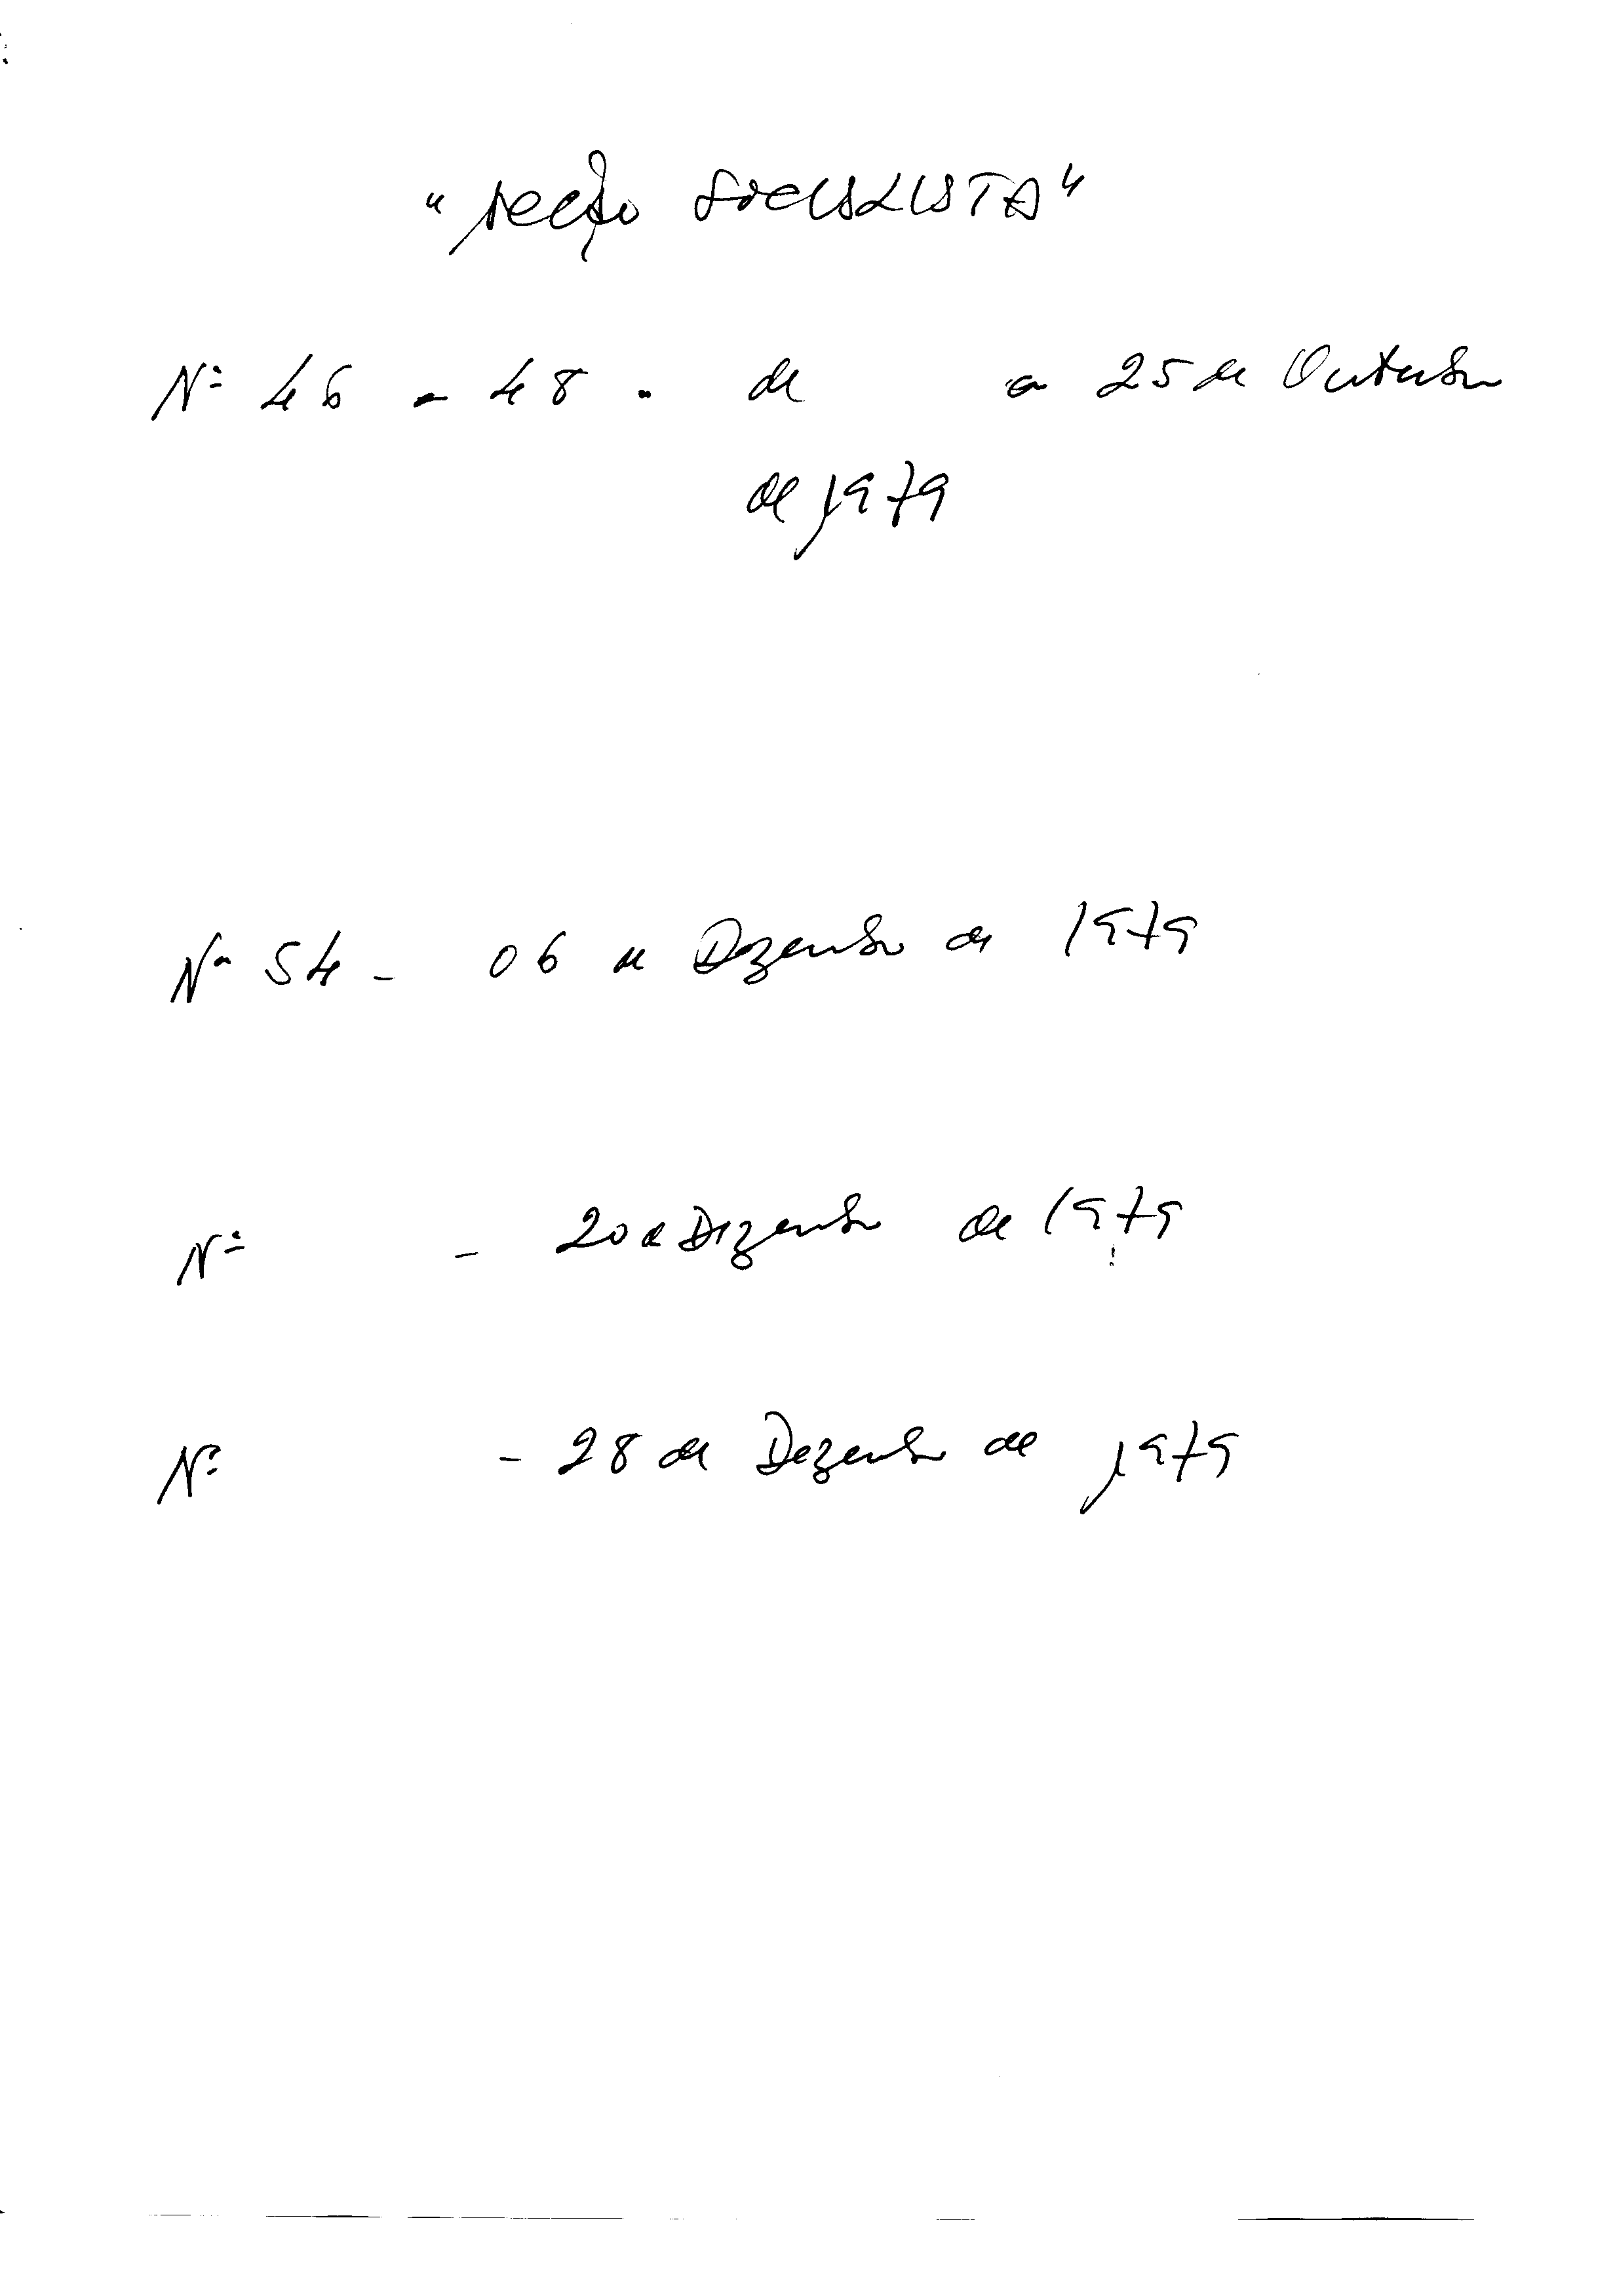 "Acção SOCIALISTA"
Nº 46 - 48 - de a 25 de Outubro
de 1979
Nº 54 - 06 de Dezembro de 1979
Nº - 20 de Dezembro de 1979
Nº - 28 de Dezembro de 1979